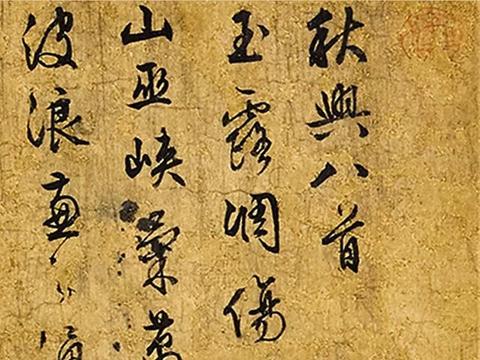 秋興八首
玉露凋傷
山巫峽氣蕭
波浪兼天湧